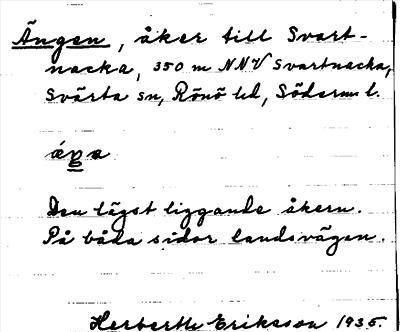 Ängen, åker till Svart-
nacka, 350 m NNV Svartnacka,
Svärta sn, Rönö hd, Söderm. l.
Den lägst liggande åkern.
På båda sidor landsvägen.
Herbert Eriksson 1935.